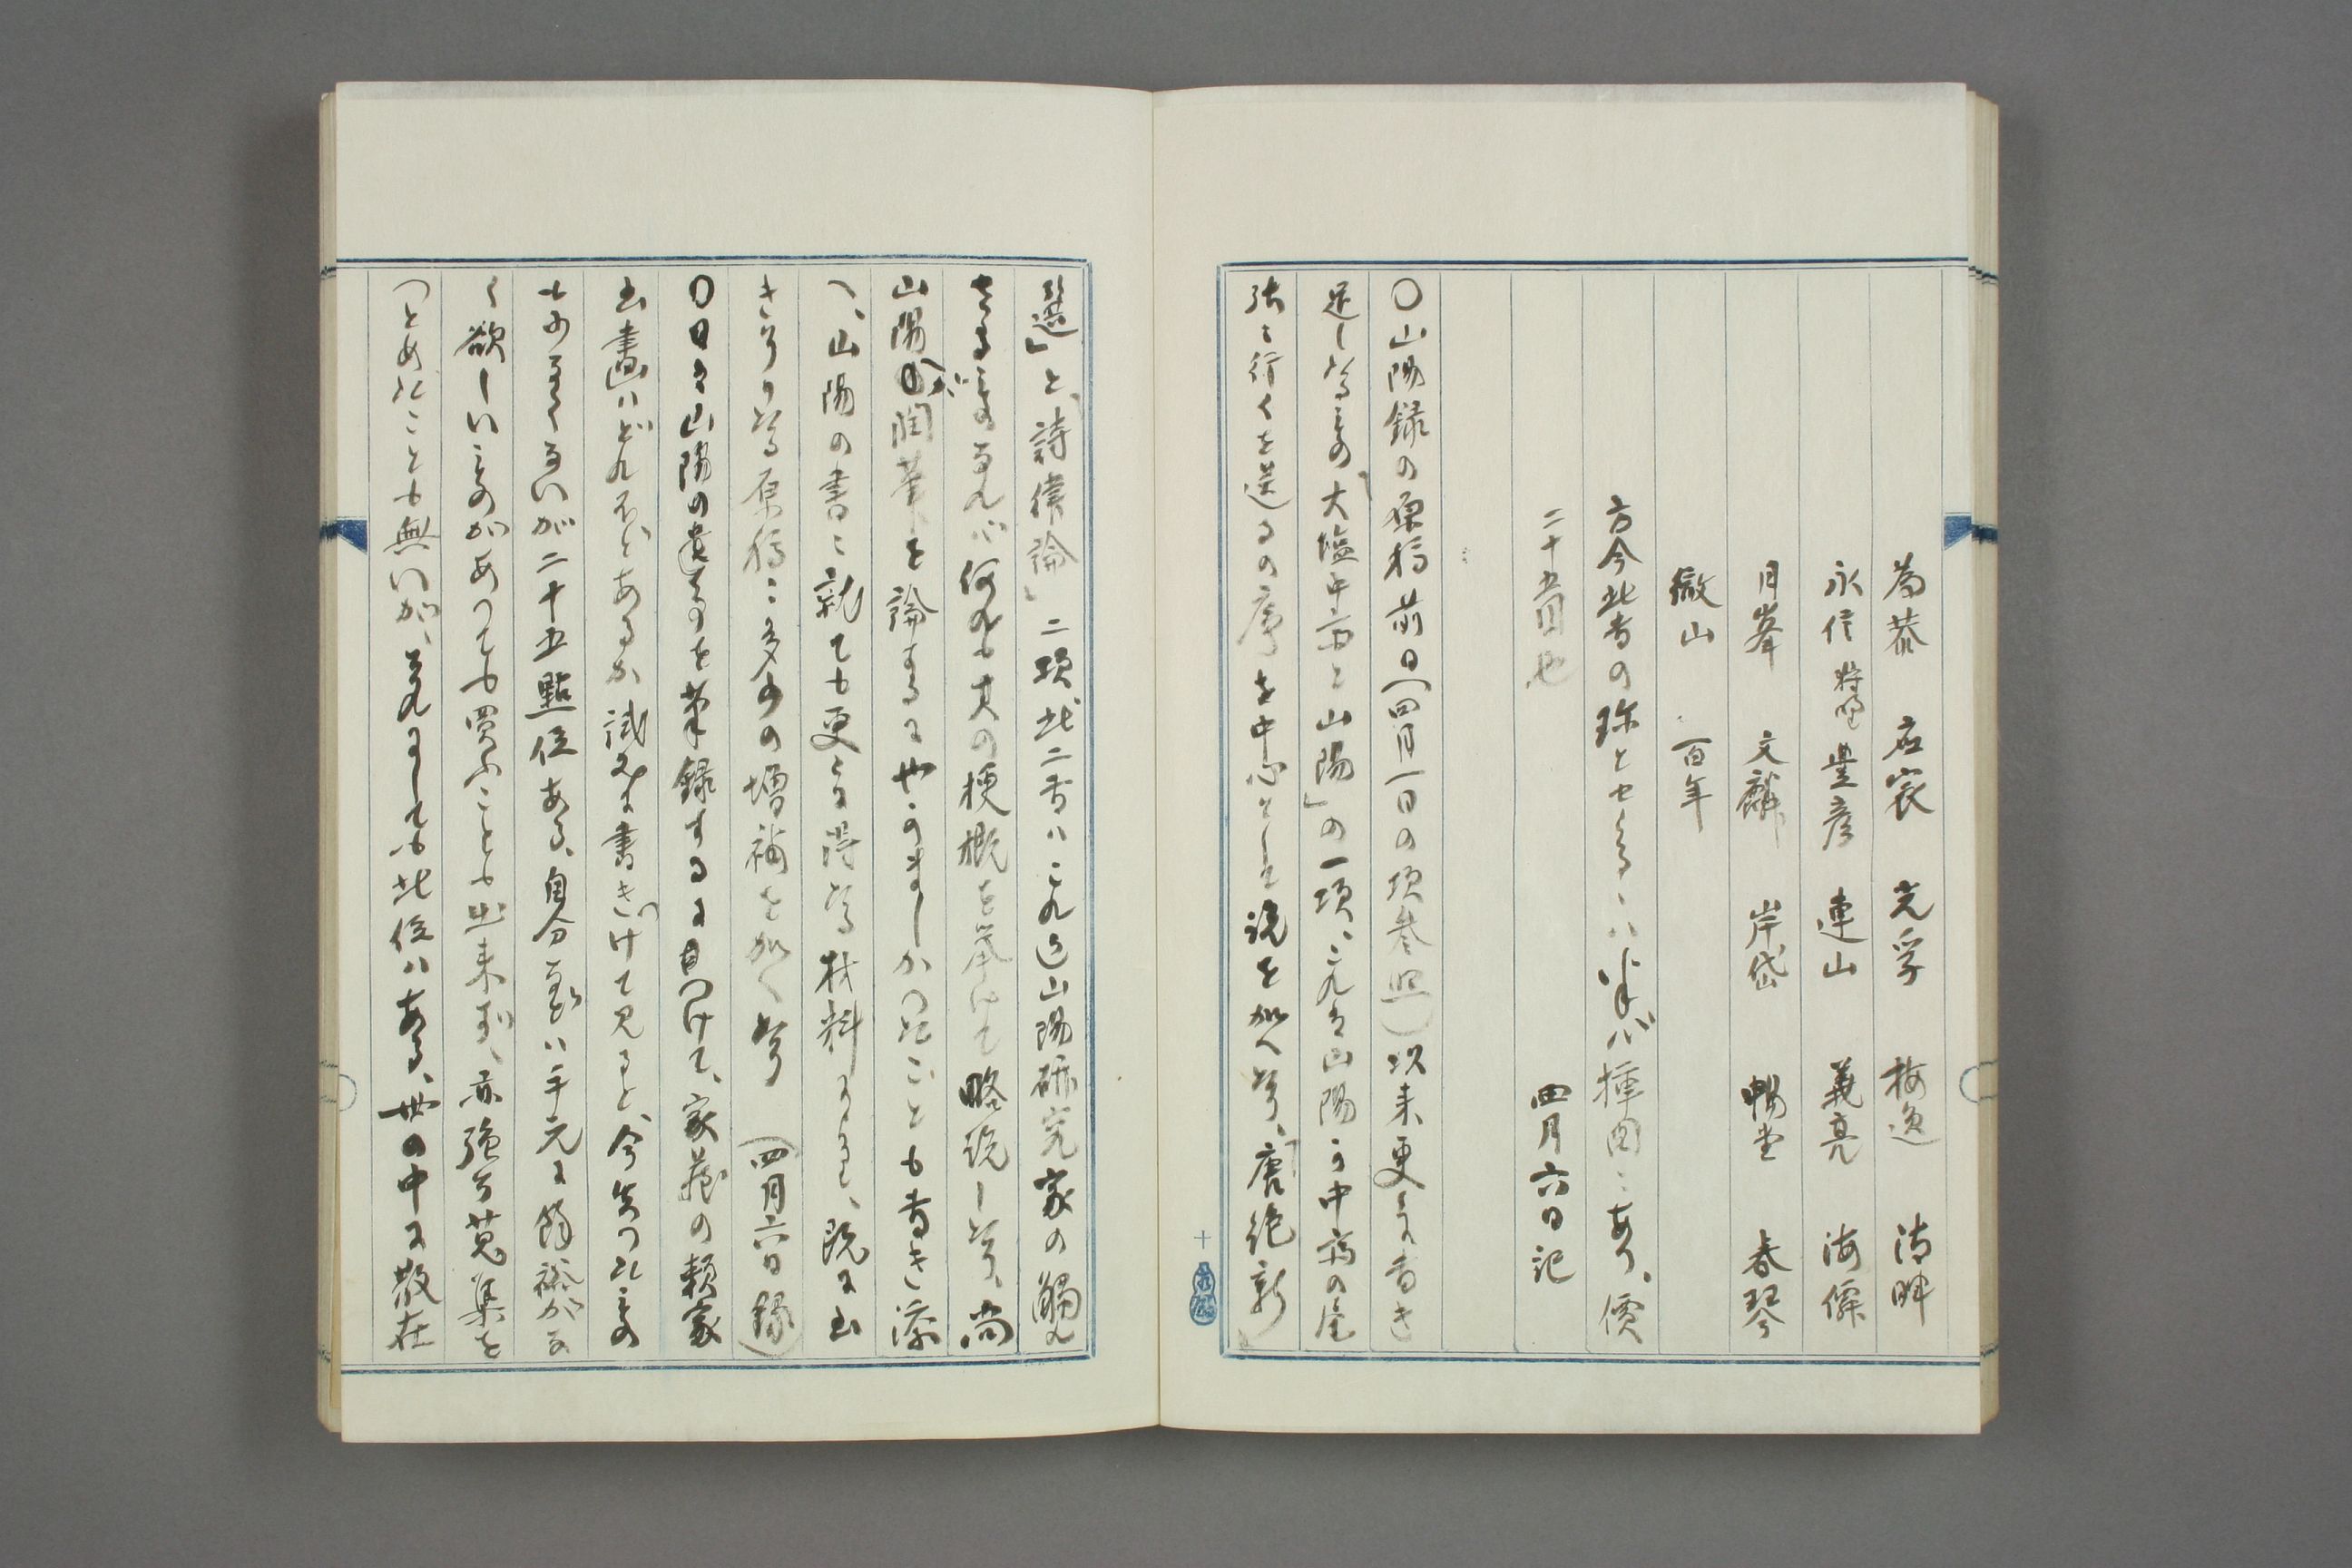 為恭 応宸 光孚 梅逸 清暉
永信 将曹 豊彦 連山 義亮 海僊
月峯 文麟 岸岱 暢堂 春琴
徽山 百年
方今此書の珍とせらるゝハ半バ挿図ニあり、價
二十五圓也 四月六日記
〇山陽録の原稿前日(四月一日の項参照)以来更らに書き
足したるもの「大塩中斎と山陽」の一項、これは山陽が中斎の尾
張に行くを送るの序を中心として説を加へたり、「唐絶新
選」と、「詩律論」二項、此二者ハこれ迄山陽研究家の觸れ
ざるものなれバ何れも其の梗概を挙げて略説したり、尚
山陽が潤筆を論ずるにやかましかつたことも書き添
へ、山陽の書に就ても更らに得たる材料あると、既に出
来たる原稿に多少の増補を加へたり (四月六日録)
〇日々山陽の遺事を筆録するに目つけて、家蔵の頼家
書画ハどれほどあるか試みに書きつけて見ると、今失つたもの
も少なくないが二十五點位ある、自分などハ手元に餘裕がな
く欲しいものがあつても買ふことも出来ず、亦強ち蒐集を
つとめたことも無いが、それにしても此位ハある、世の中に散在